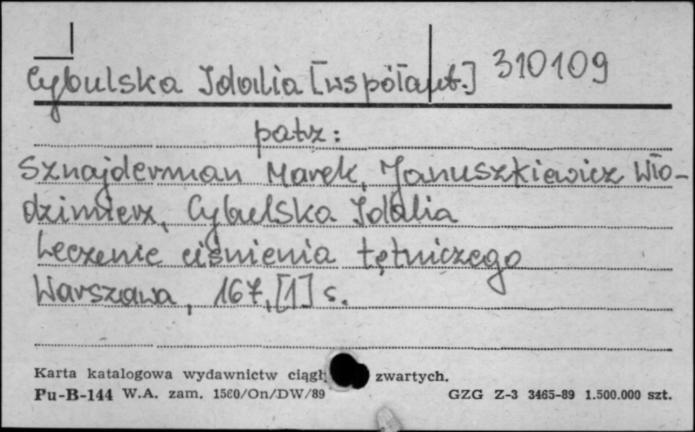 Cybulska Idalia [współaut.] 310109
patrz:
Sznajderman Marek, Januszkiewicz Wło-
dzimierz, Cybulska Idalia
Leczenie ciśnienia tętniczego
Warszawa, 167,[1] s.
Karta katalogowa wydawnictw zwartych.
Pu-B-144 W.A. zam. 1560/On/DW/89 GZG Z-3 3465-89 1.500.000 szt.